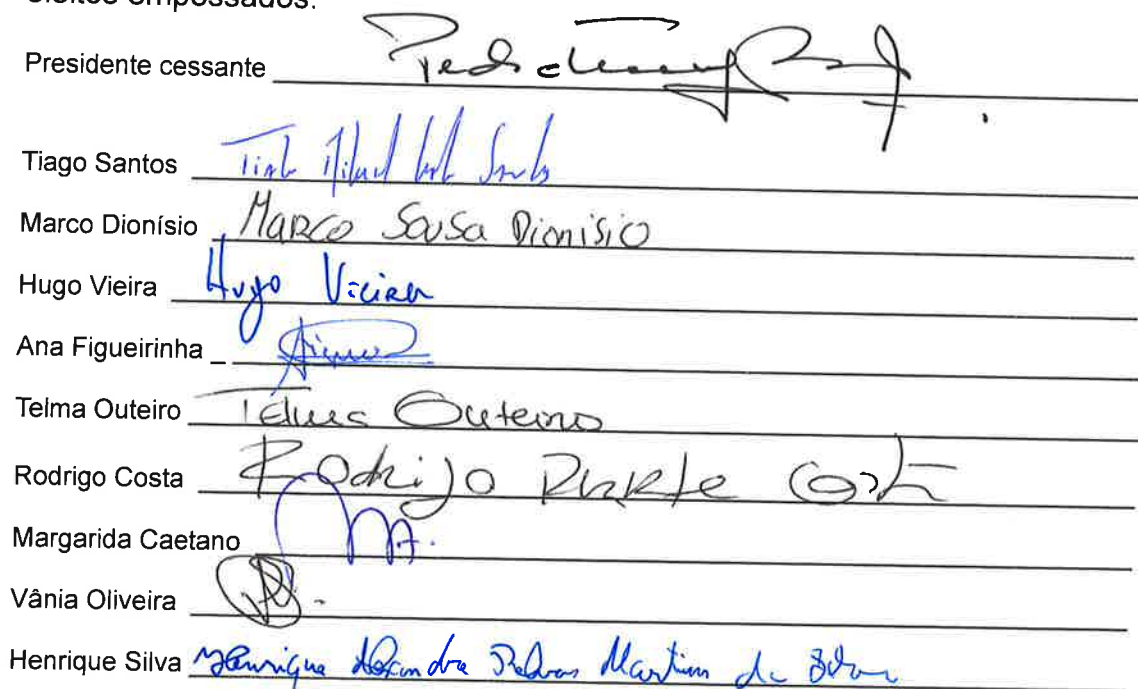 eleitos empossados.
Presidente cessante
Tiago Santos
Marco Dionísio Marco Sousa Dionisio
Hugo Vieira Hugo Vieira
Ana Figueirinha
Telma Outeiro Telma Outeiro
Rodrigo Costa Rodrigo Duarte Costa
Margarida Caetano
Vânia Oliveira
Henrique Silva Henrique Alexandre Martins da Silva